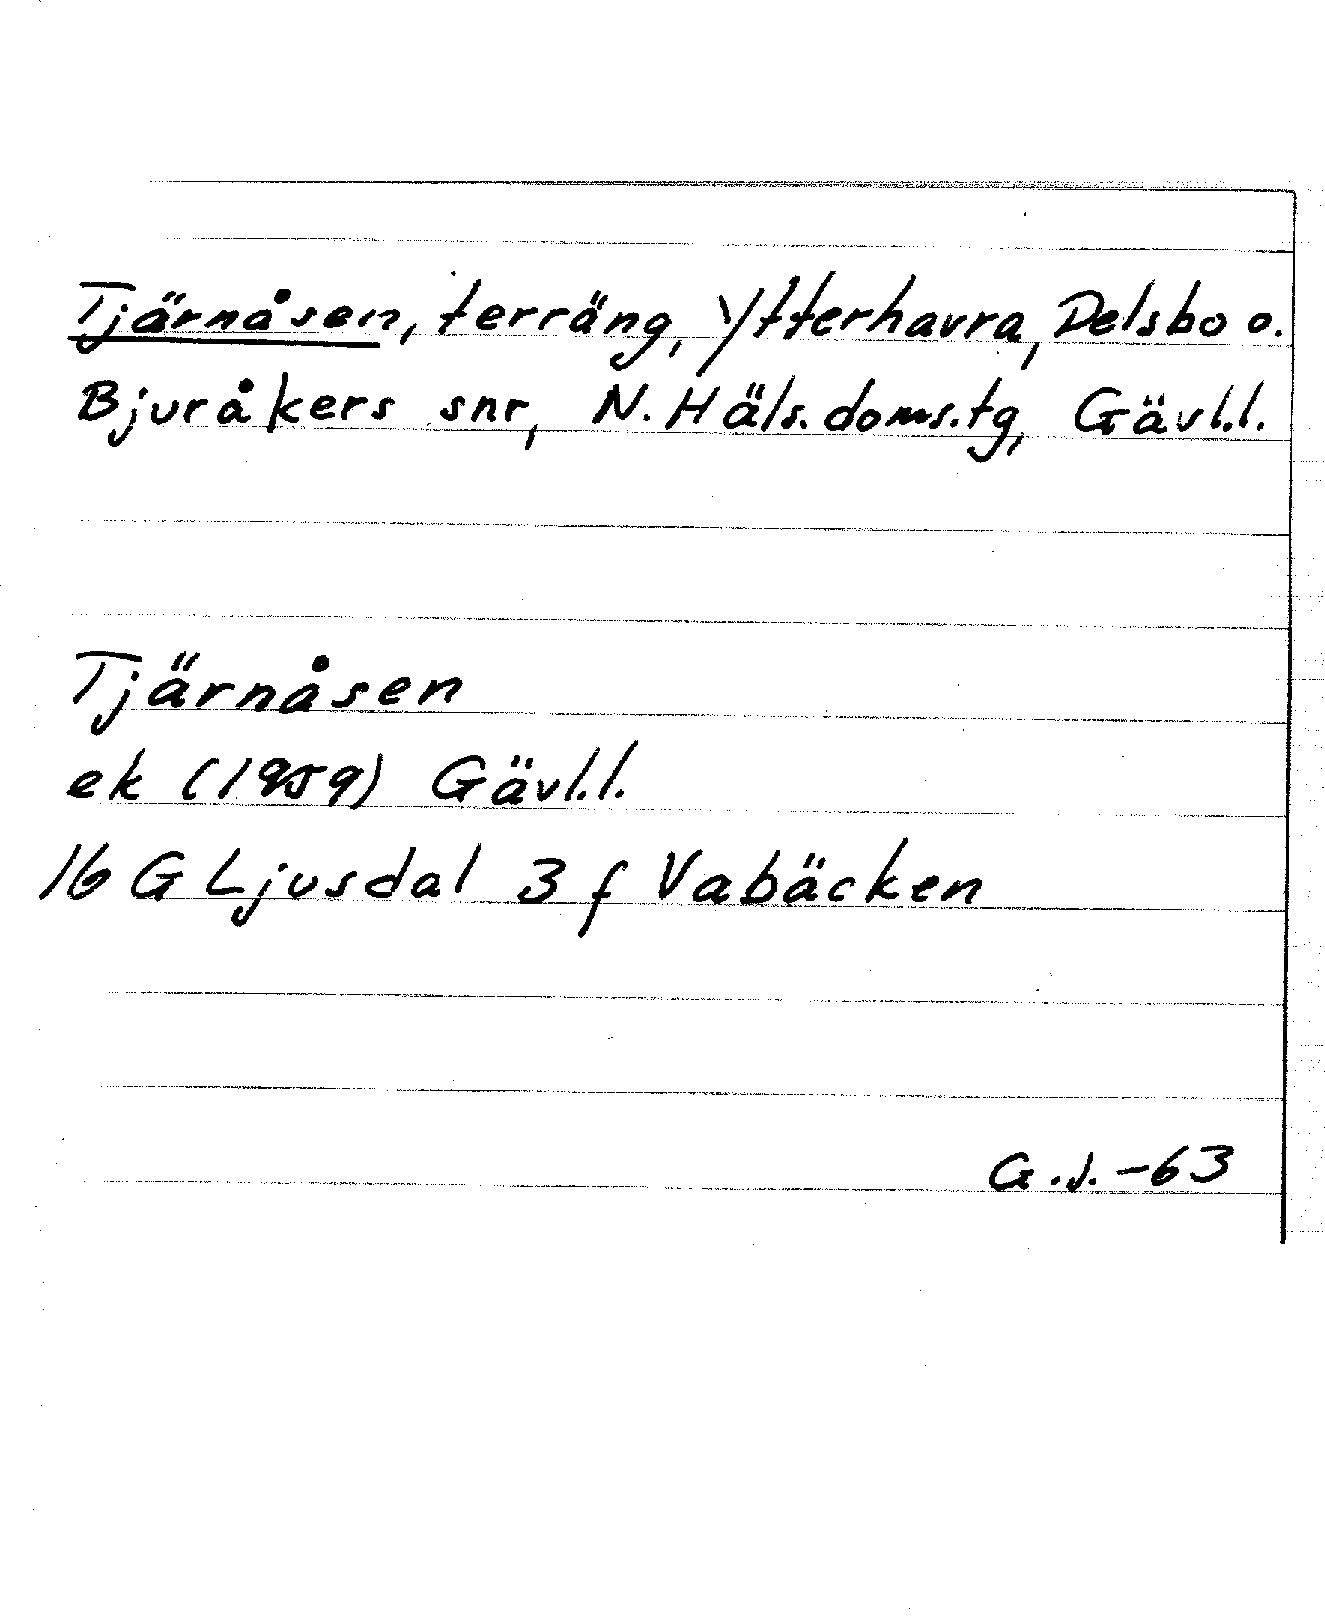 Tjärnåsen, terräng, Ytterhavra, Delsbo o.
Bjuråkers snr, N. Häls. doms.tg, Gävl.l.
Tjärnåsen
ek (1959) Gävl.l.
16 G Ljusdal 3 f Vabäcken
G.J. -63